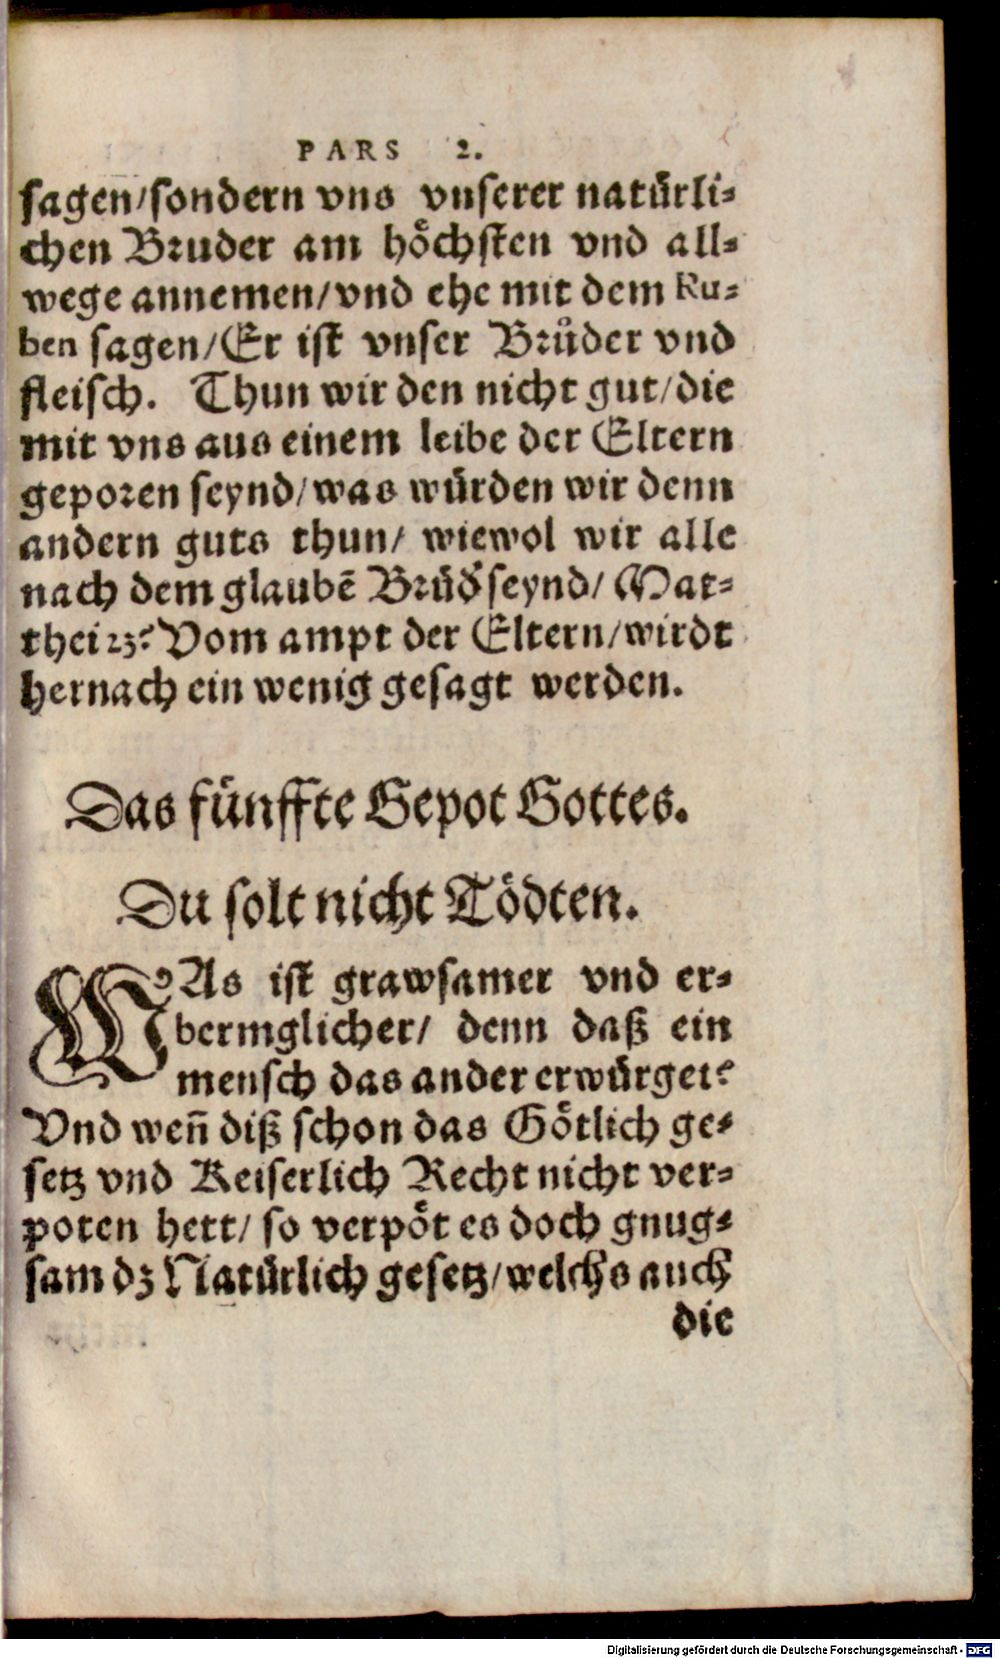 PARS 2.
sagen/sondern vns vnserer natürli-
chen Bruder am hoͤchsten vnd all-
wege annemen/vnd ehe mit dem Ru-
ben sagen/Er ist vnser Bruͦder vnd
fleisch. Thun wir den nicht gut/die
mit vns aus einem leibe der Eltern
geporen seynd/was würden wir denn
andern guts thun/ wiewol wir alle
nach dem glaubē Brüd' seynd/ Mat-
thei 23? Vom ampt der Eltern/wirdt
hernach ein wenig gesagt werden.
Das fünffte Gepot Gottes.
Du solt nicht Tödten.
WAs ist grawsamer vnd er-
bermglicher/ denn daß ein
mensch das ander erwürget?
Vnd weñ diß schon das Goͤtlich ge-
setz vnd Keiserlich Recht nicht ver-
poten hett/ so verpoͤt es doch gnug-
sam dz Natürlich gesetz/welchs auch
die
Digitalisierung gefördert durch die Deutsche Forschungsgemeinschaft - DFG